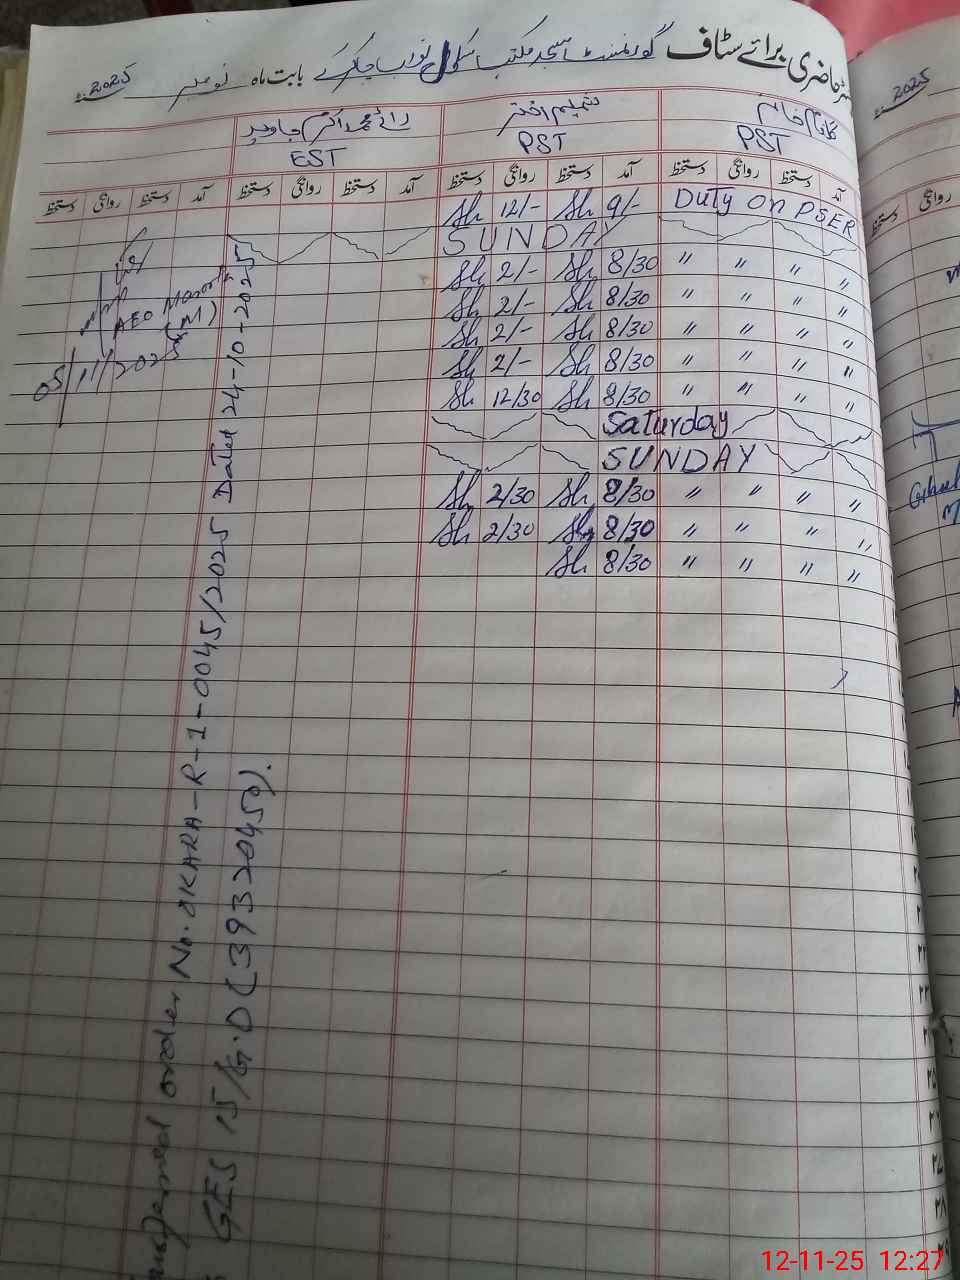 حاضری برائے سٹاف گورنمنٹ مسجد مکتب سکول نواب چاکر کے بابت ماہ نومبر 2025
2025
رائے محمد اکرم جاوید
EST
PST
PST
آمد دستخط روانگی دستخط آمد دستخط روانگی دستخط آمد دستخط روانگی دستخط آمد دستخط روانگی دستخط
دستخط روانگی
Duty on PSER 9/- Sh 12/- Sh
SUNDAY
" " " " 8/30 Sh 2/- Sh
" " " " 8/30 Sh 2/- Sh
" " " " 8/30 Sh 2/- Sh
" " " " 8/30 Sh 2/- Sh
" " " " 8/30 Sh 12/30 Sh
Saturday
SUNDAY
" " " " 8/30 Sh 2/30 Sh
" " " " 8/30 Sh 2/30 Sh
" " " " 8/30 Sh
AEO
(M)
05/11/2025
order No. OKARA-R-1-0045/2025 Dated 24-10-2025
GES 15/G.D (39320450).
12-11-25 12:27